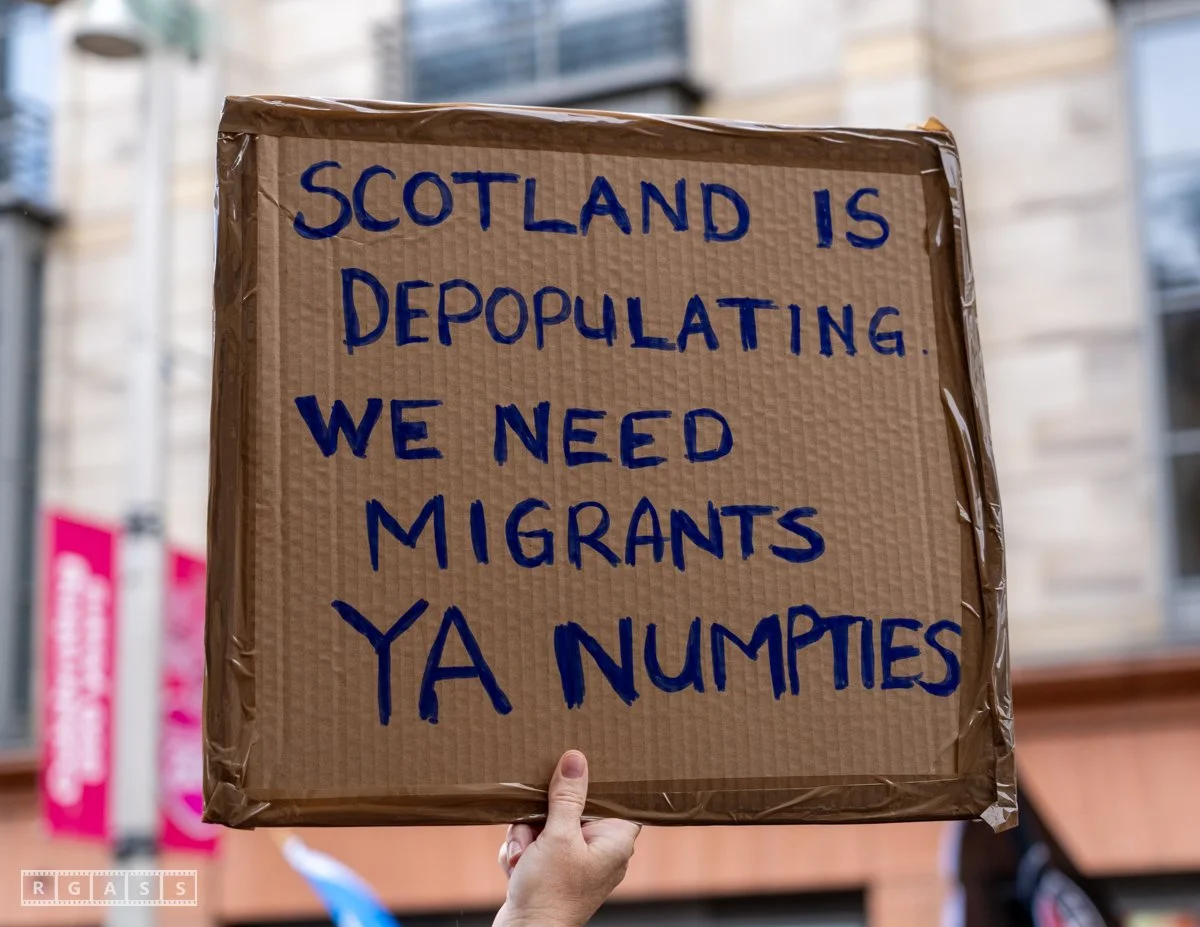 SCOTLAND IS
DEPOPULATING.
WE NEED
MIGRANTS
YA NUMPTIES
RGASS